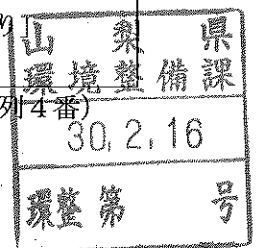 り
山梨県
環境整備課
列4番)
30.2.16
環整第 号